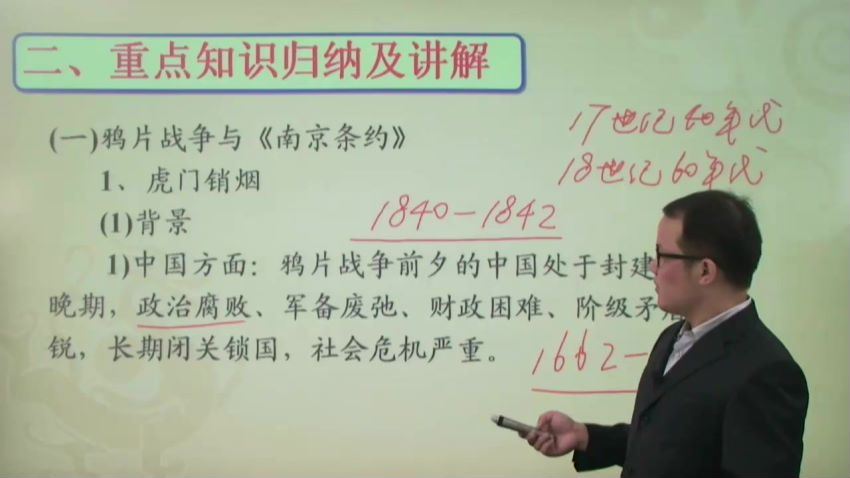 二、重点知识归纳及讲解
(一)鸦片战争与《南京条约》
17世纪40年代
1、虎门销烟
18世纪60年代
(1)背景
1840-1842
1)中国方面：鸦片战争前夕的中国处于封建
晚期，政治腐败、军备废弛、财政困难、阶级矛
锐，长期闭关锁国，社会危机严重。
1662-